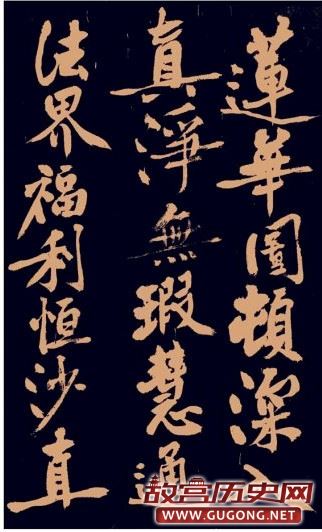 蓮華圓頓深入
真淨無瑕慧通
法界福利恒沙直
故宫历史网
WWW.GUGONG.NET